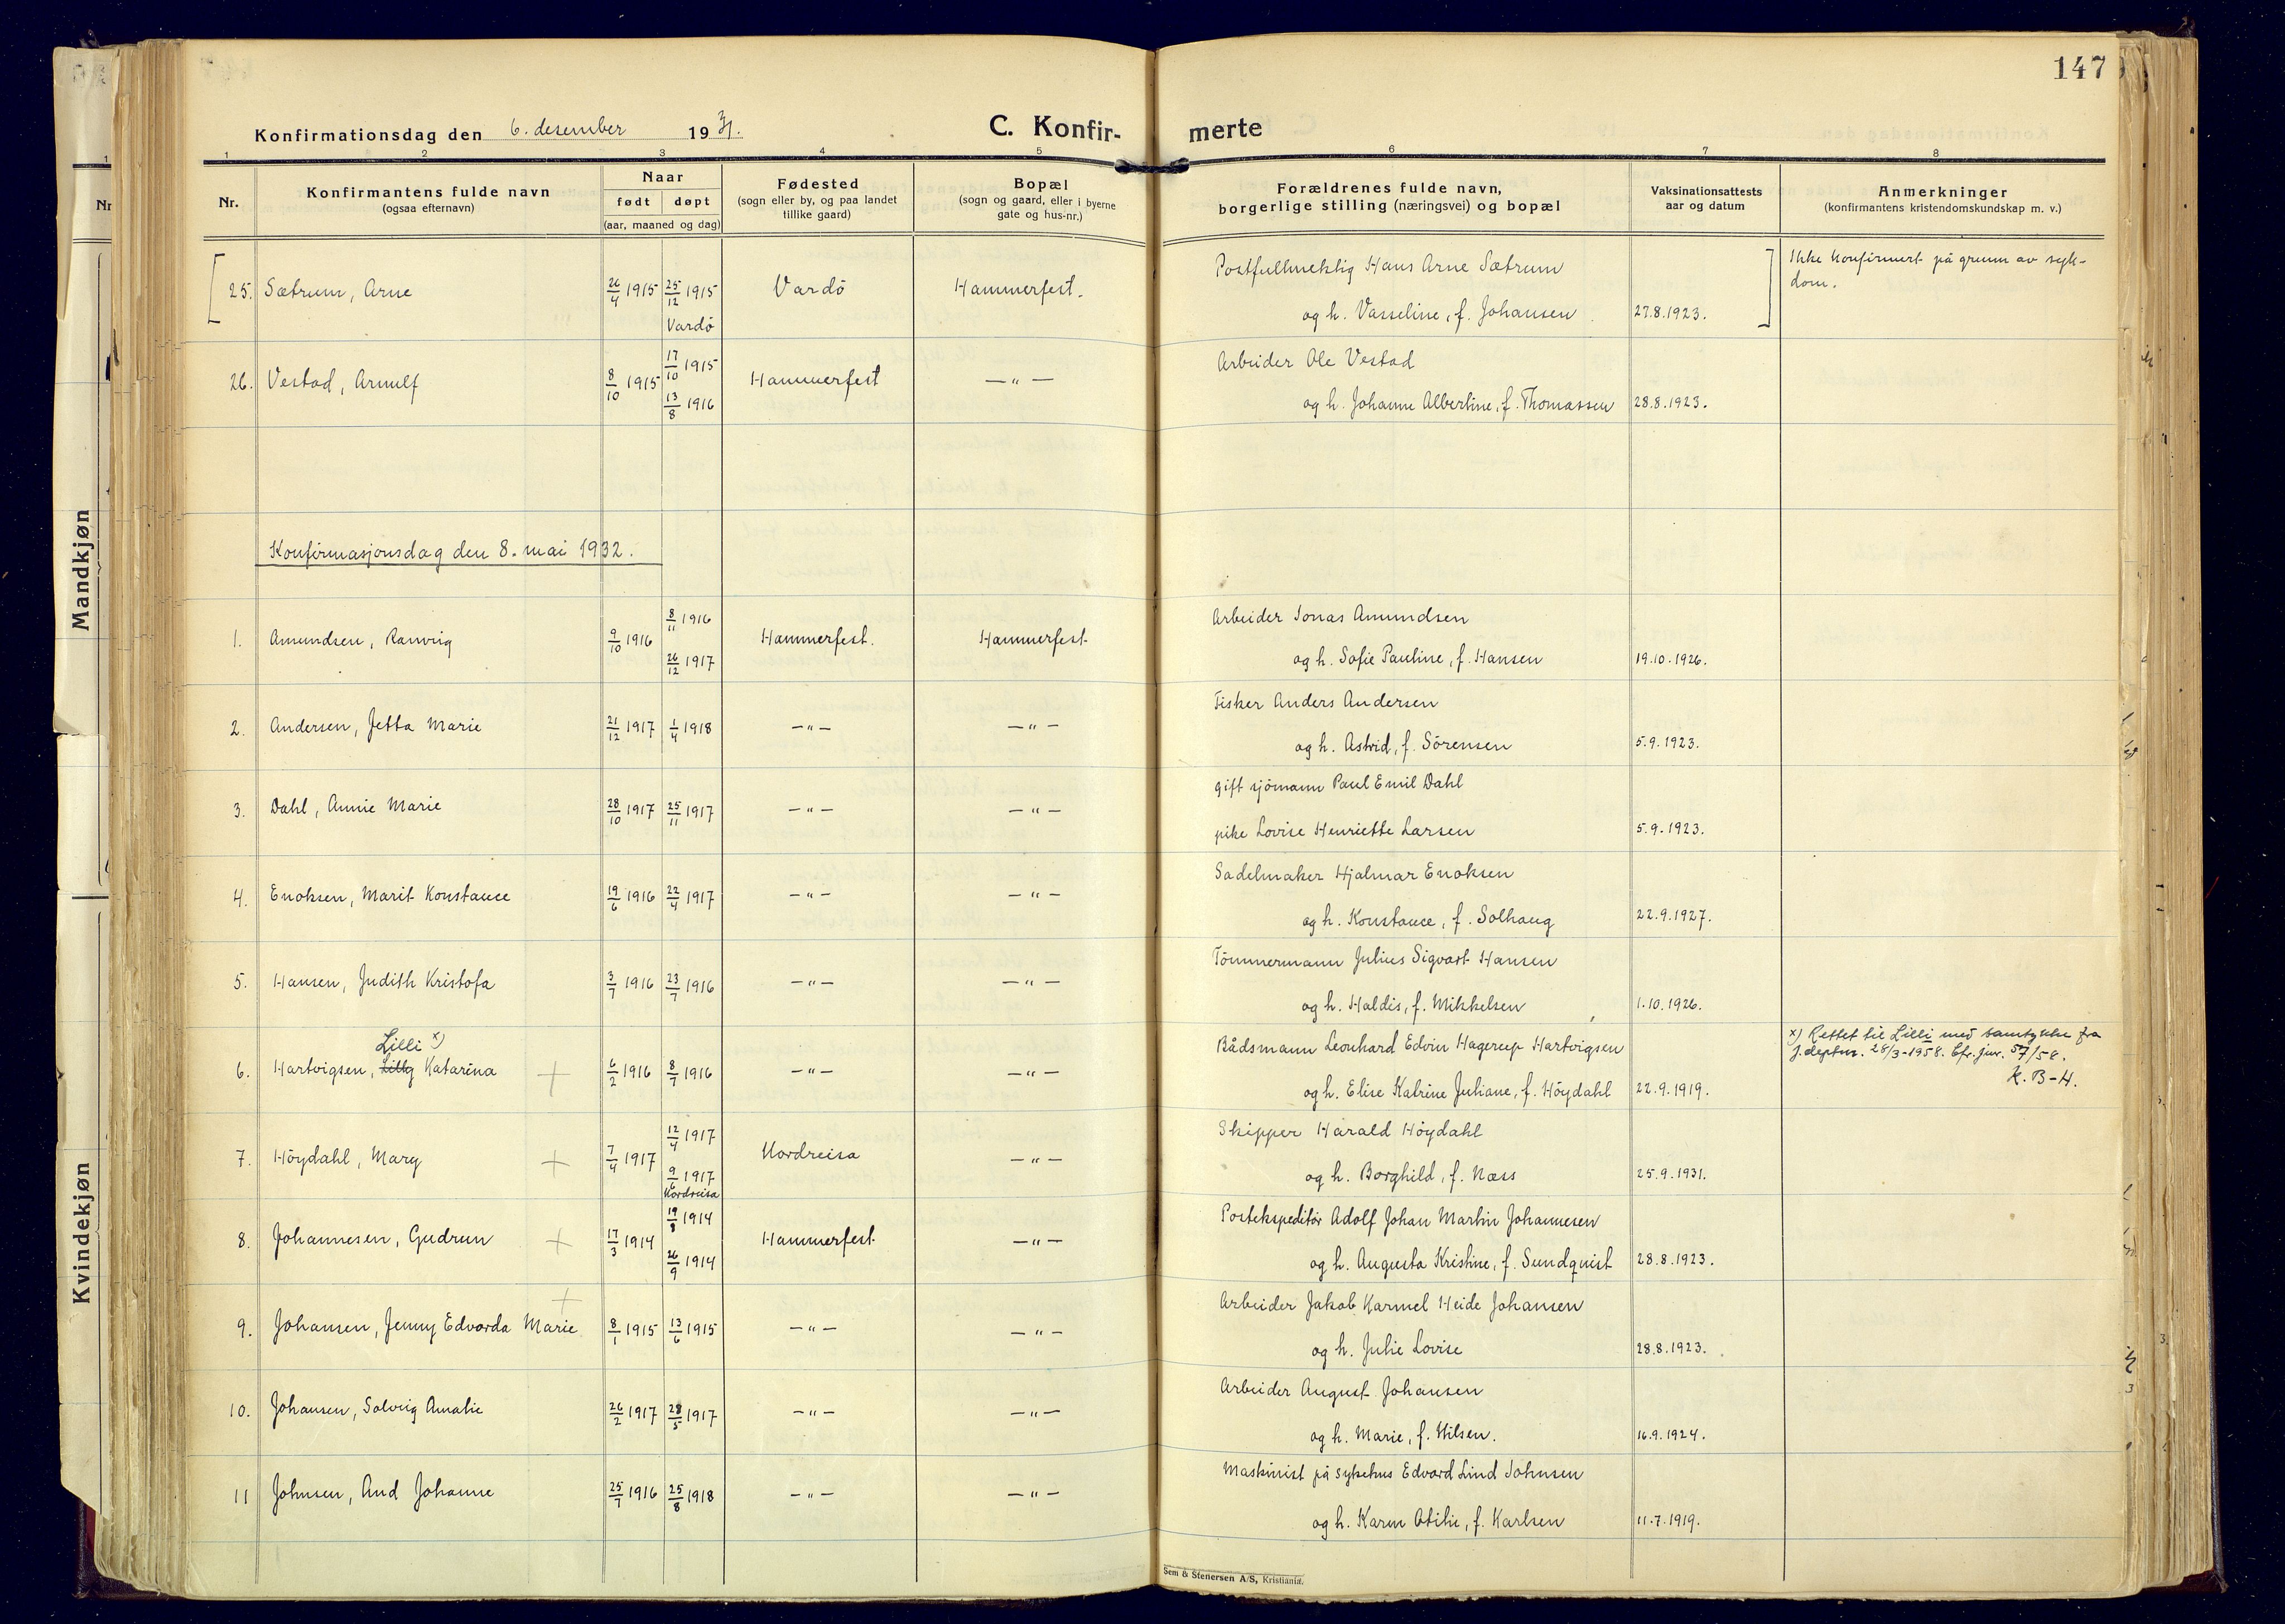 147
Konfirmationsdag den 6. desember 1931.
C. Konfir-
merte
1 2 3 4 5 6 7 8
Nr.
Konfirmantens fulde navn
(ogsaa efternavn)
Naar
født døpt
(aar, maaned og dag)
Fødested
(sogn eller by, og paa landet
tillike gaard)
Bopæl
(sogn og gaard, eller i byerne
gate og hus-nr.)
Forældrenes fulde navn,
borgerlige stilling (næringsvei) og bopæl
Vaksinationsattests
aar og datum
Anmerkninger
(konfirmantens kristendomskundskap m. v.)
Nr
Mandkjøn
Kvindekjøn
Postfullmektig Hans Arne Sætrum
Ikke konfirmert på grunn av syk-
dom.
25. Sætrum, Arne 26/4 1915 25/12 1915 Vardö Hammerfest.
Vardö
og h. Vasseline, f. Johansen 27.8.1923.
Arbeider Ole Vestad
17/10 1915
26. Vestad, Arnulf 8/10 1915 Hammerfest — " —
13/8 1916
og h. Johanne Albertine, f. Thomassen 28.8.1923.
Konfirmasjonsdag den 8. mai 1932.
8/11 1916
Arbeider Jonas Amundsen
1. Amundsen, Ranveig 9/10 1916 Hammerfest. Hammerfest
26/12 1917
og h. Sofie Pauline, f. Hansen 19.10.1926.
Fisker Anders Andersen
2. Andersen, Jetta Marie 21/12 1917 1/4 1918 — " — — " —
og h. Astrid, f. Sörensen 5.9.1923.
gift sjömann Paul Emil Dahl
3. Dahl, Annie Marie 28/10 1917 25/11 1917 — " — — " —
pike Lovise Henriette Larsen 5.9.1923.
Sadelmaker Hjalmar Enoksen
4. Enoksen, Marit Konstance 19/6 1916 22/4 1917 — " — — " —
og h. Konstance, f. Solhaug 22.9.1927.
Tömmermann Julius Sigvart Hansen
5. Hansen, Judith Kristofa 3/7 1916 23/7 1916 — " — — " —
og h. Haldis, f. Mikkelsen 1.10.1926.
Lilli x)
Bådsmann Leonhard Edvin Hagerup Hartvigsen
x) Rettet til Lilli med samtykke fra
J. deptm. 28/3-1958. Cfr. jnr. 57/58.
K. B-H.
6. Hartvigsen, Lilly Katarina 6/2 1916 8/7 1916 — " — — " —
og h. Elise Katrine Juliane, f. Höydahl 22.9.1919.
12/4 1917
Skipper Harald Höydahl
7. Höydahl, Mary 7/4 1917 Nordreisa — " —
9/6 1917
Nordreisa
og h. Borghild, f. Næss 25.9.1931.
19/8 1914
Postekspeditör Adolf Johan Martin Johannesen
8. Johannesen, Gudrun 17/3 1914 Hammerfest — " —
26/9 1914
og h. Augusta Kristine, f. Sundquist 28.8.1923.
Arbeider Jakob Karmel Heide Johansen
9. Johansen, Jenny Edvarda Marie 8/1 1915 13/6 1915 — " — — " —
og h. Julie Lovise 28.8.1923.
Arbeider August Johansen
10. Johansen, Solveig Amalie 26/2 1917 28/5 1917 — " — — " —
og h. Marie, f. Nilsen. 16.9.1924.
Maskinist på sykehus Edvard Lind Johnsen
11 Johnsen, Aud Johanne 25/7 1916 25/8 1918 — " — — " —
og h. Karen Otilie, f. Karlsen 11.7.1919.
Sem & Stenersen A/S, Kristiania.